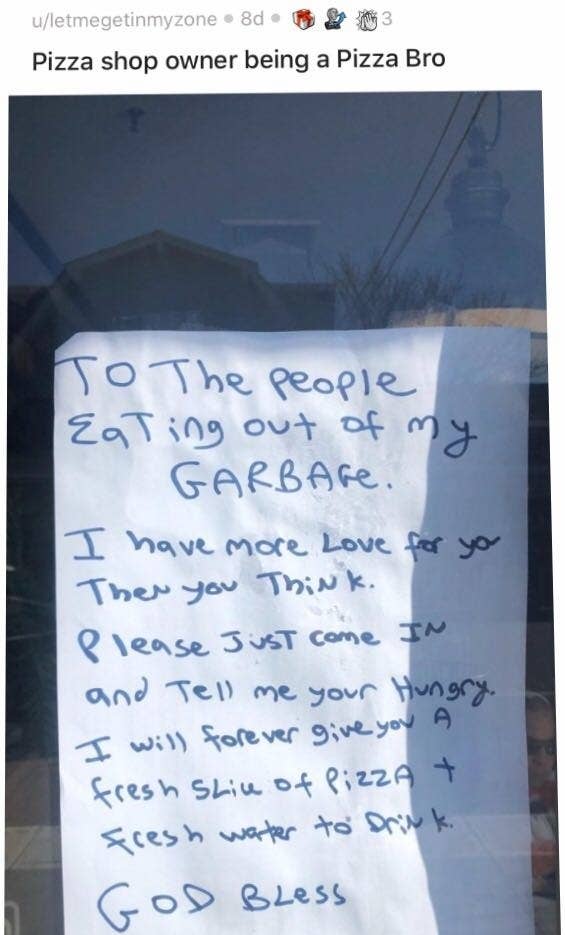 u/letmegetinmyzone • 8d • 3
Pizza shop owner being a Pizza Bro
TO The People
EaTing out of my
GARBAGe.
I have more Love for yo
Then you ThiNk.
Please JusT come IN
and Tell me your Hungry.
I will forever give you A
fresh SLiu of PizzA +
fresh water to DriNk.
GOD BLess